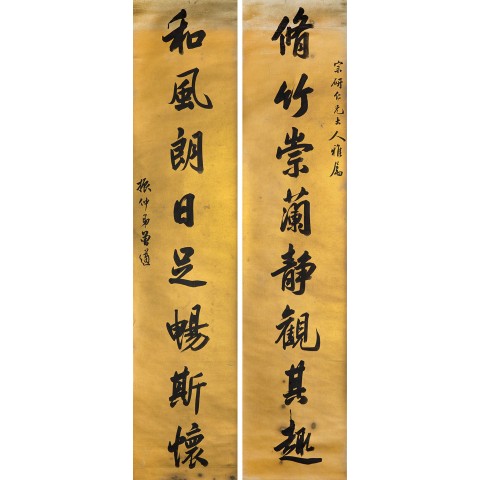 宗研仁兄大人雅屬
脩竹崇蘭靜觀其趣
和風朗日足暢斯懷
振仲弟曾遒